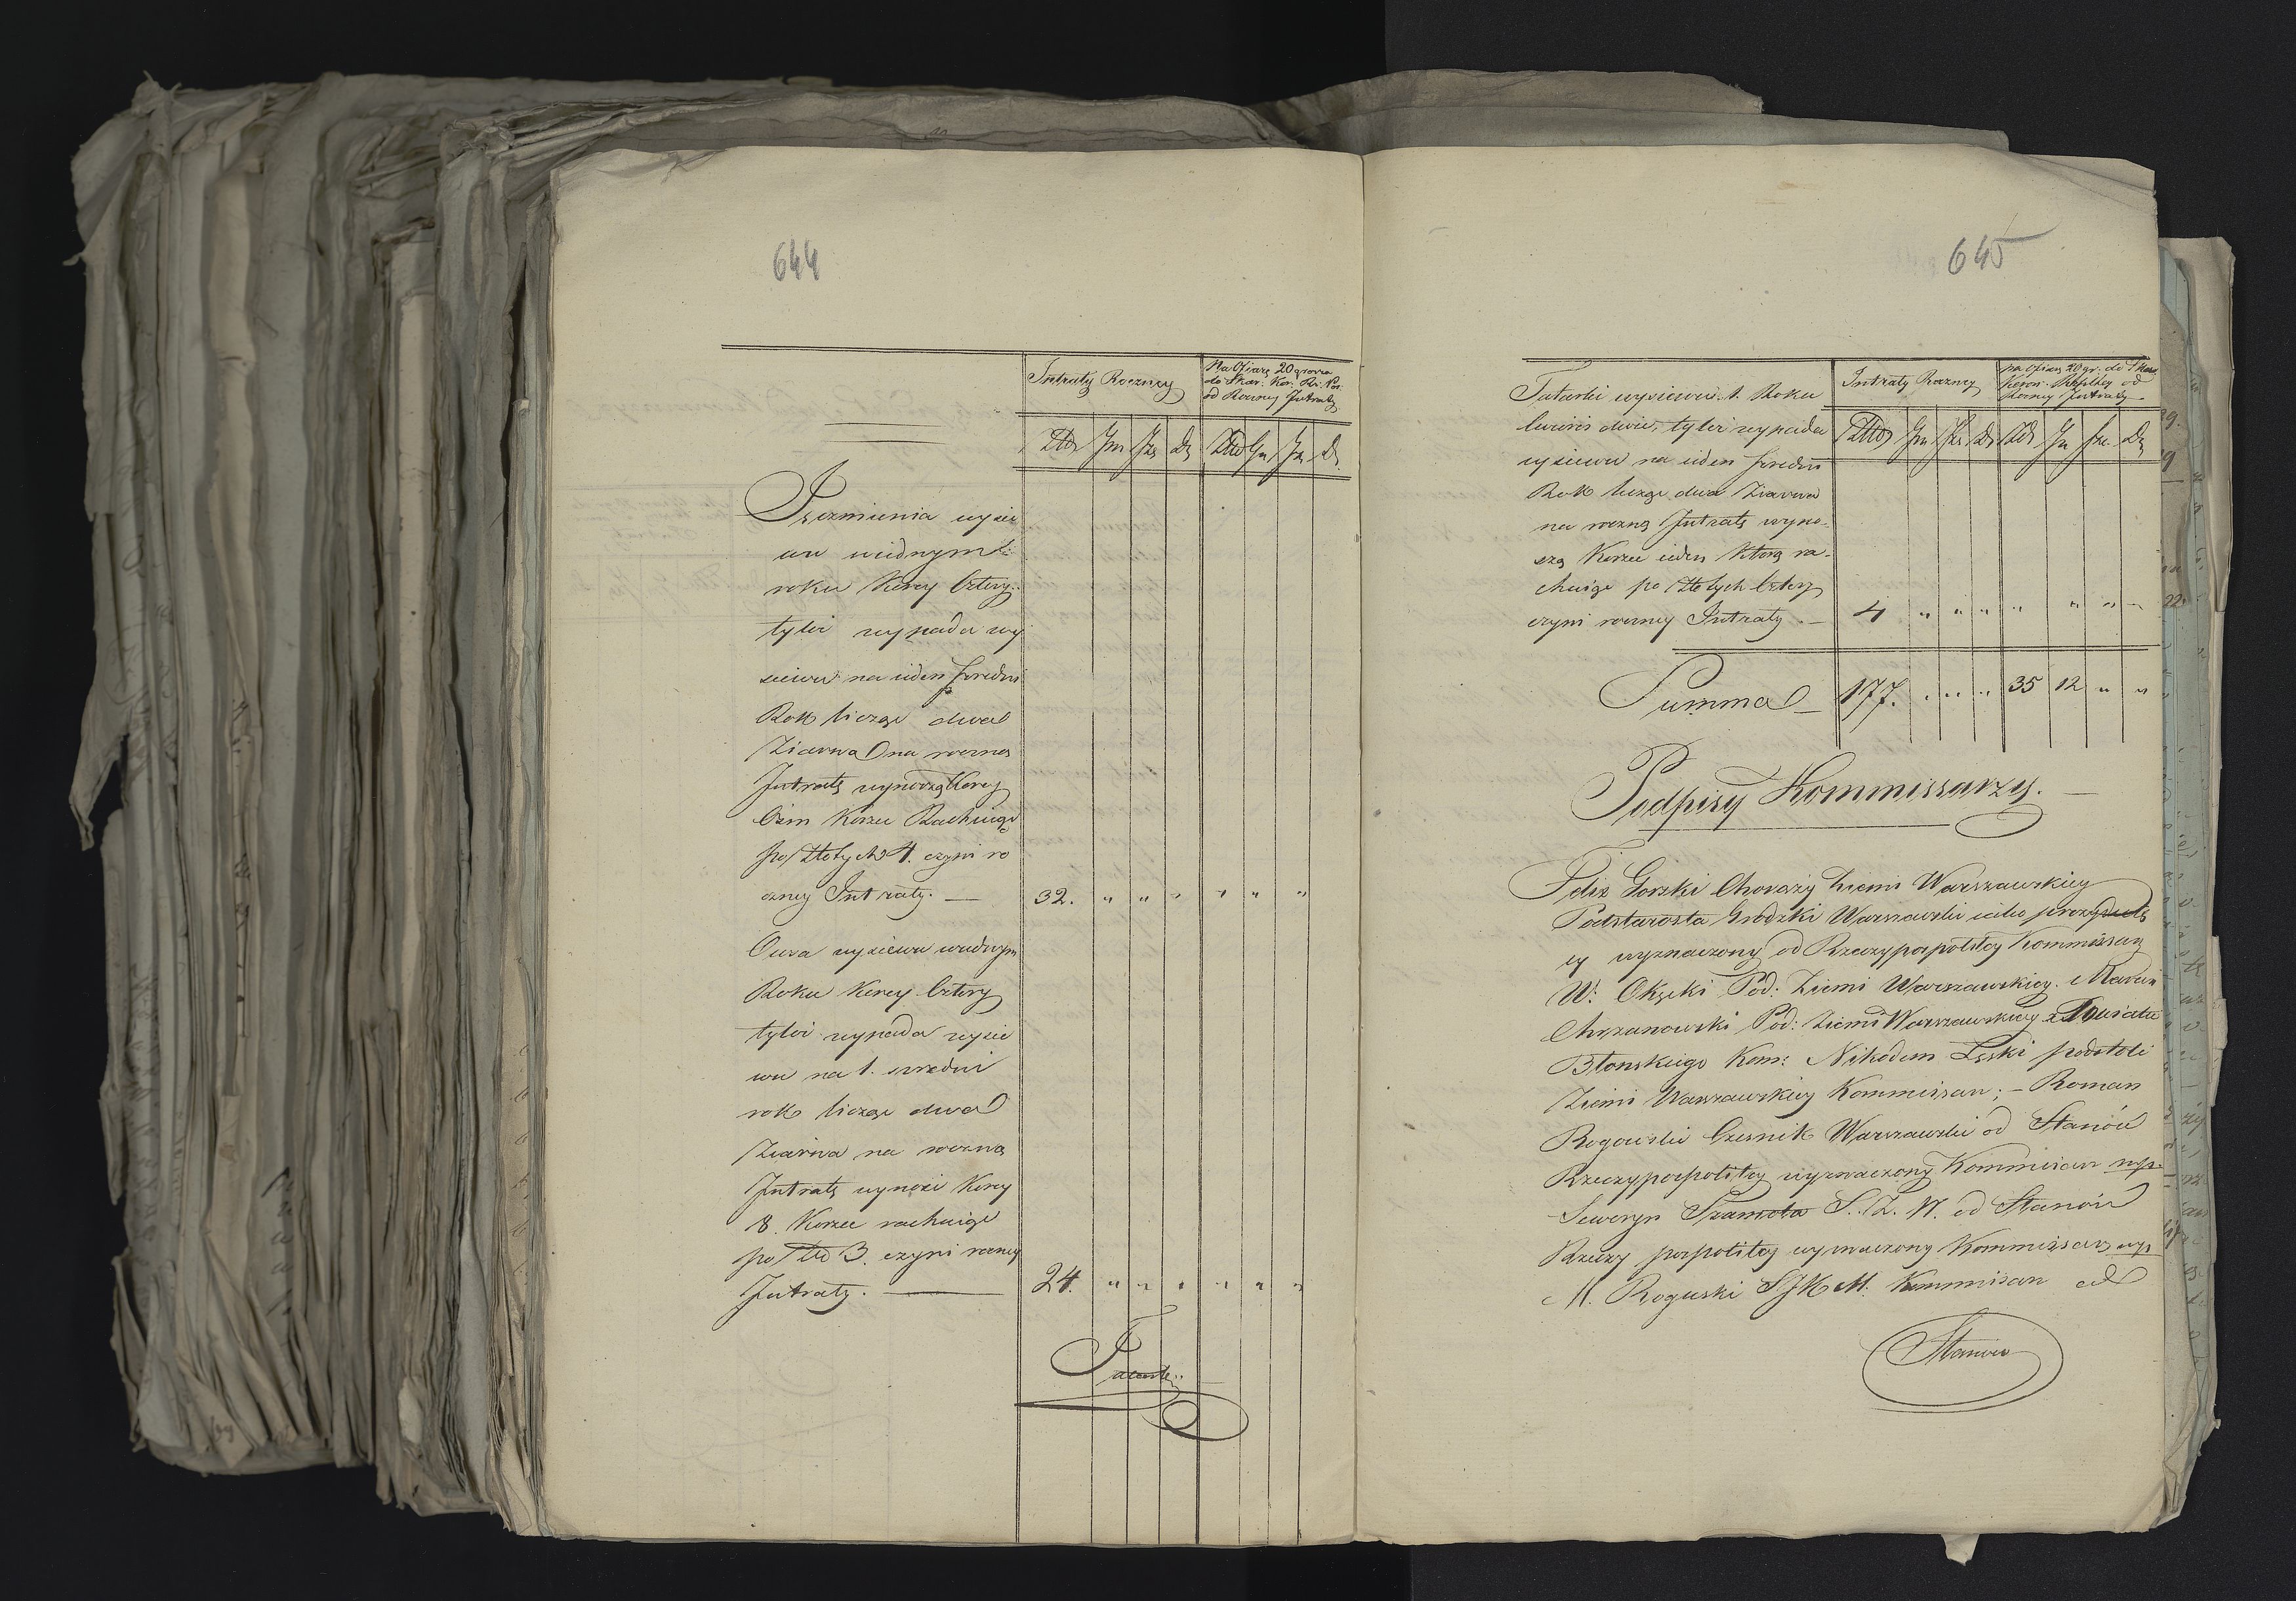 644
Intraty Roczney
Na Ofiarę 20 grosza
do Skar: Kor: Rz: Pos:
od Roczney Intraty
Złł Gr Sze De Złł Gr Sze De
Jęczmienia wysie
wu wiednym
roku Korcy Cztery
tyleż wypada wy
siewu na ieden średni
Rok licząc dwa
Ziarna na roczną
Intratę wynoszą Korcy
Ośm Korzec Rachuiąc
po Złotych 4. czyni ro
czney Intraty. — 32. " " " " " "
Owsa wysiewu wiednym
Roku Korcy Cztery
tyleż wypada wysie
wu na 1. sredni
rok licząc dwa
Ziarna na roczną
Intratę wynosi Korcy
8. Korzec rachuiąc
po Złł 3. czyni roczney
Intraty. — 24. " " " " " "
645
Intraty Roczney
na Ofiarę 20 gr. do Skarbu
Koron. Rzplitey od
Roczney Intraty
Złł Gr Sze De Złł Gr Sze De
Tatarki wysiewu 1. Roku
ćwierci dwie, tyleż wypada
wysiewu na ieden sredni
Rok licząc dwa Ziarna
na roczną Intratę wyno-
szą Korzec ieden ktorą ra-
chuiąc po Złotych Cztery
czyni roczney Intraty. — 4 " " " " " " "
Summa — 177. " " " 35 12 " "
Podpisy Kommissarzy. —
Felix Gorski Chorąży Ziemi Warszawskiey
Podstarosta Grodzki Warszawski iako prezyduią
cy wyznaczony od Rzeczypospolitey Kommissarz
W: Okęcki Pod: Ziemi Warszawskiey. Marcin
Chrzanowski Pod: Ziemi Warszawskiey z Powiatu
Błonskiego Kom: Nikodem Łęski podstoli
Ziemi Warszawskiey Kommissarz; — Roman
Rogowski Czesnik Warszawski od Stanów
Rzeczypospolitey wyznaczony Kommissarz mp.
Seweryn Szamota S. Z. W. od Stanów
Rzeczy pospolitey wyznaczony Kommissarz mp.
M. Roguski S J K M. Kommissarz od
Stanow